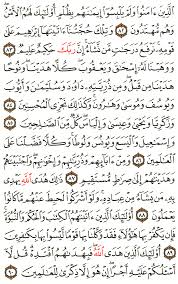 الَّذِينَ ءَامَنُوا۟ وَلَمْ يَلْبِسُوٓا۟ إِيمَـٰنَهُم بِظُلْمٍ أُو۟لَـٰٓئِكَ لَهُمُ ٱلْأَمْنُ
وَهُم مُّهْتَدُونَ ٨٢ وَتِلْكَ حُجَّتُنَآ ءَاتَيْنَـٰهَآ إِبْرَٰهِيمَ عَلَىٰ
قَوْمِهِۦ نَرْفَعُ دَرَجَـٰتٍ مَّن نَّشَآءُ إِنَّ رَبَّكَ حَكِيمٌ عَلِيمٌ ٨٣
وَوَهَبْنَا لَهُۥٓ إِسْحَـٰقَ وَيَعْقُوبَ كُلًّا هَدَيْنَا وَنُوحًا
هَدَيْنَا مِن قَبْلُ وَمِن ذُرِّيَّتِهِۦ دَاوُۥدَ وَسُلَيْمَـٰنَ وَأَيُّوبَ
وَيُوسُفَ وَمُوسَىٰ وَهَـٰرُونَ وَكَذَٰلِكَ نَجْزِى ٱلْمُحْسِنِينَ ٨٤
وَزَكَرِيَّا وَيَحْيَىٰ وَعِيسَىٰ وَإِلْيَاسَ كُلٌّ مِّنَ ٱلصَّـٰلِحِينَ ٨٥
وَإِسْمَـٰعِيلَ وَٱلْيَسَعَ وَيُونُسَ وَلُوطًا وَكُلًّا فَضَّلْنَا عَلَى
ٱلْعَـٰلَمِينَ ٨٦ وَمِنْ ءَابَآئِهِمْ وَذُرِّيَّـٰتِهِمْ وَإِخْوَٰنِهِمْ وَٱجْتَبَيْنَـٰهُمْ
وَهَدَيْنَـٰهُمْ إِلَىٰ صِرَٰطٍ مُّسْتَقِيمٍ ٨٧ ذَٰلِكَ هُدَى ٱللَّهِ يَهْدِى
بِهِۦ مَن يَشَآءُ مِنْ عِبَادِهِۦ وَلَوْ أَشْرَكُوا۟ لَحَبِطَ عَنْهُم مَّا كَانُوا۟
يَعْمَلُونَ ٨٨ أُو۟لَـٰٓئِكَ ٱلَّذِينَ ءَاتَيْنَـٰهُمُ ٱلْكِتَـٰبَ وَٱلْحُكْمَ وَٱلنُّبُوَّةَ
فَإِن يَكْفُرْ بِهَا هَـٰٓؤُلَآءِ فَقَدْ وَكَّلْنَا بِهَا قَوْمًا لَّيْسُوا۟ بِهَا بِكَـٰفِرِينَ
٨٩ أُو۟لَـٰٓئِكَ ٱلَّذِينَ هَدَى ٱللَّهُ فَبِهُدَىٰهُمُ ٱقْتَدِهْ قُل لَّآ
أَسْـَٔلُكُمْ عَلَيْهِ أَجْرًا إِنْ هُوَ إِلَّا ذِكْرَىٰ لِلْعَـٰلَمِينَ ٩٠